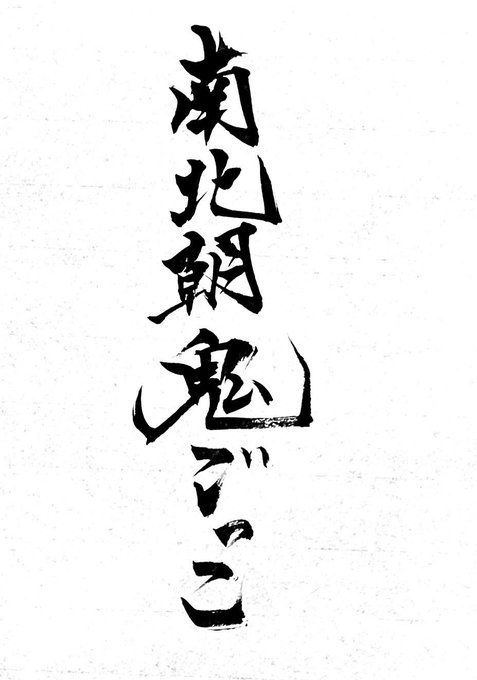 南北朝鬼ごっこ